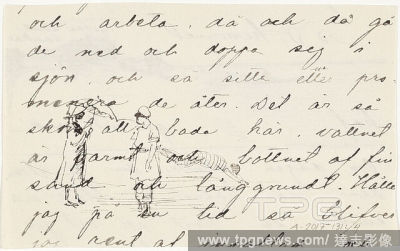 och arbeta. då och då gå
de ned och doppa sig i
sjön, och så sitta elle pro-
menera de åter. Det är så
skönt att bada här. vattnet
är varmt och bottnet af fin
sand och långgrundt. Håller
jag på en tid så blifver
jag rent af
A-2017-1312/4
TPG
www.tpgnews.com | 達志影像